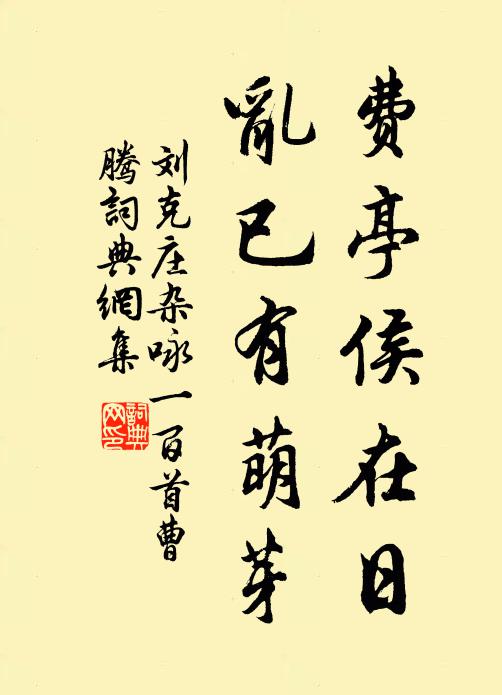 费亭侯在日
亂已有萌芽
刘克庄杂咏一百首曹
腾詞典網集
詞典
网印